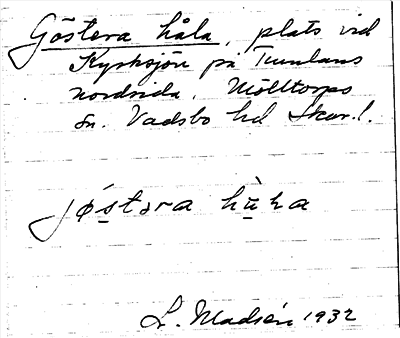 Göstera håla, plats vid
Kyrksjön på Tunnlans
nordsida, Mölltorps
sn. Vadsbo hd Skar. l.
jøstəra hùna
L. Madsén 1932